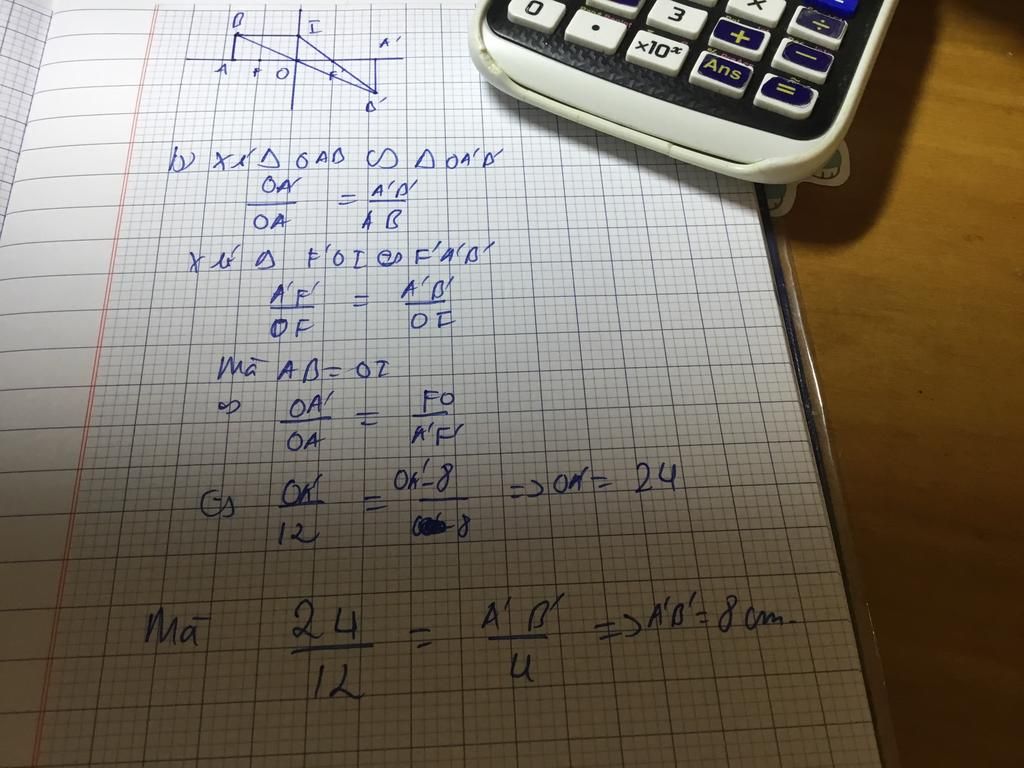 0 . 3 × ÷
×10ˣ + −
Ans =
B I A'
A F O F' B'
b) Xét Δ OAB ∽ Δ OA'B'
OA'/OA = A'B'/AB
Xét Δ F'OI ∽ F'A'B'
A'F'/OF = A'B'/OI
Mà AB = OI
OA'/OA = FO/A'F'
OA'/12 = OA'-8/8 => OA' = 24
Mà 24/12 = A'B'/4 => A'B' = 8 cm